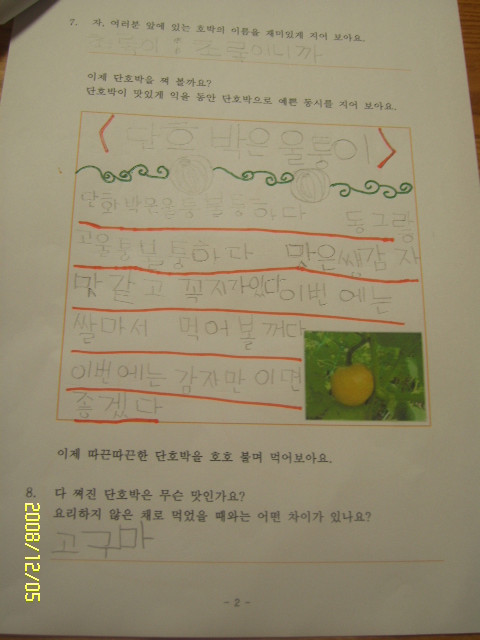 7. 자, 여러분 앞에 있는 호박의 이름을 재미있게 지어 보아요.
초록이 : 초록이니까
이제 단호박을 쪄 볼까요?
단호박이 맛있게 익을 동안 단호박으로 예쁜 동시를 지어 보아요.
< 단호박은 울퉁이 >
단화박은울퉁불퉁하다 동그랑
고울퉁불퉁하다 맛은쌩감자
맛 같고 꼭지가있다 이번에는
쌀마서 먹어볼꺼다
이번에는 감자만이면
좋겠다
이제 따끈따끈한 단호박을 호호 불며 먹어보아요.
8. 다 쪄진 단호박은 무슨 맛인가요?
요리하지 않은 채로 먹었을 때와는 어떤 차이가 있나요?
고구마
- 2 -
2008/12/05